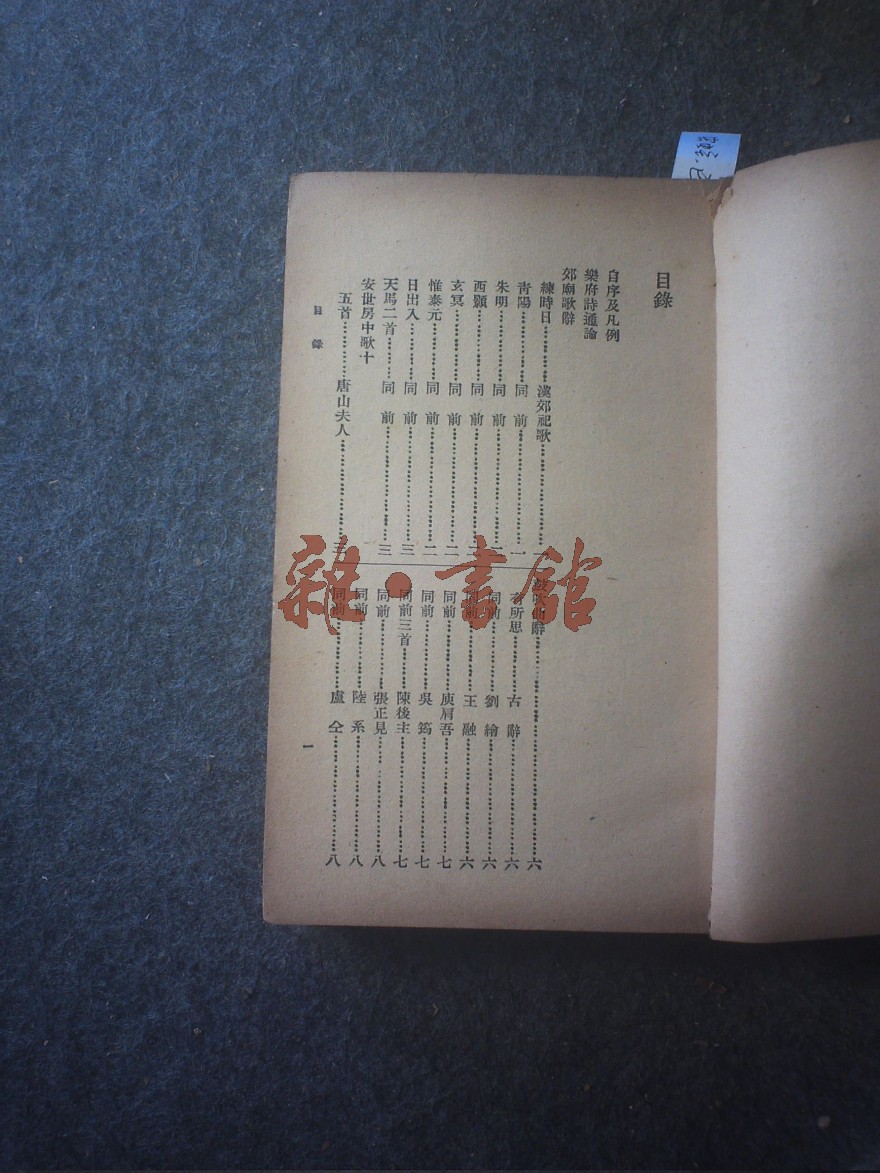 目錄
自序及凡例
樂府詩通論
郊廟歌辭
練時日……漢郊祀歌……一
青陽……同前……一
朱明……同前……二
西顥……同前……二
玄冥……同前……二
惟泰元……同前……二
日出入……同前……三
天馬二首……同前……三
安世房中歌十
五首……唐山夫人……三
鼓吹曲辭……六
有所思……古辭……六
同前……劉繪……六
同前……王融……六
同前……庾肩吾……七
同前……吳筠……七
同前三首……陳後主……七
同前……張正見……八
同前……陸系……八
同前……盧仝……八
目錄
一
雜·書館